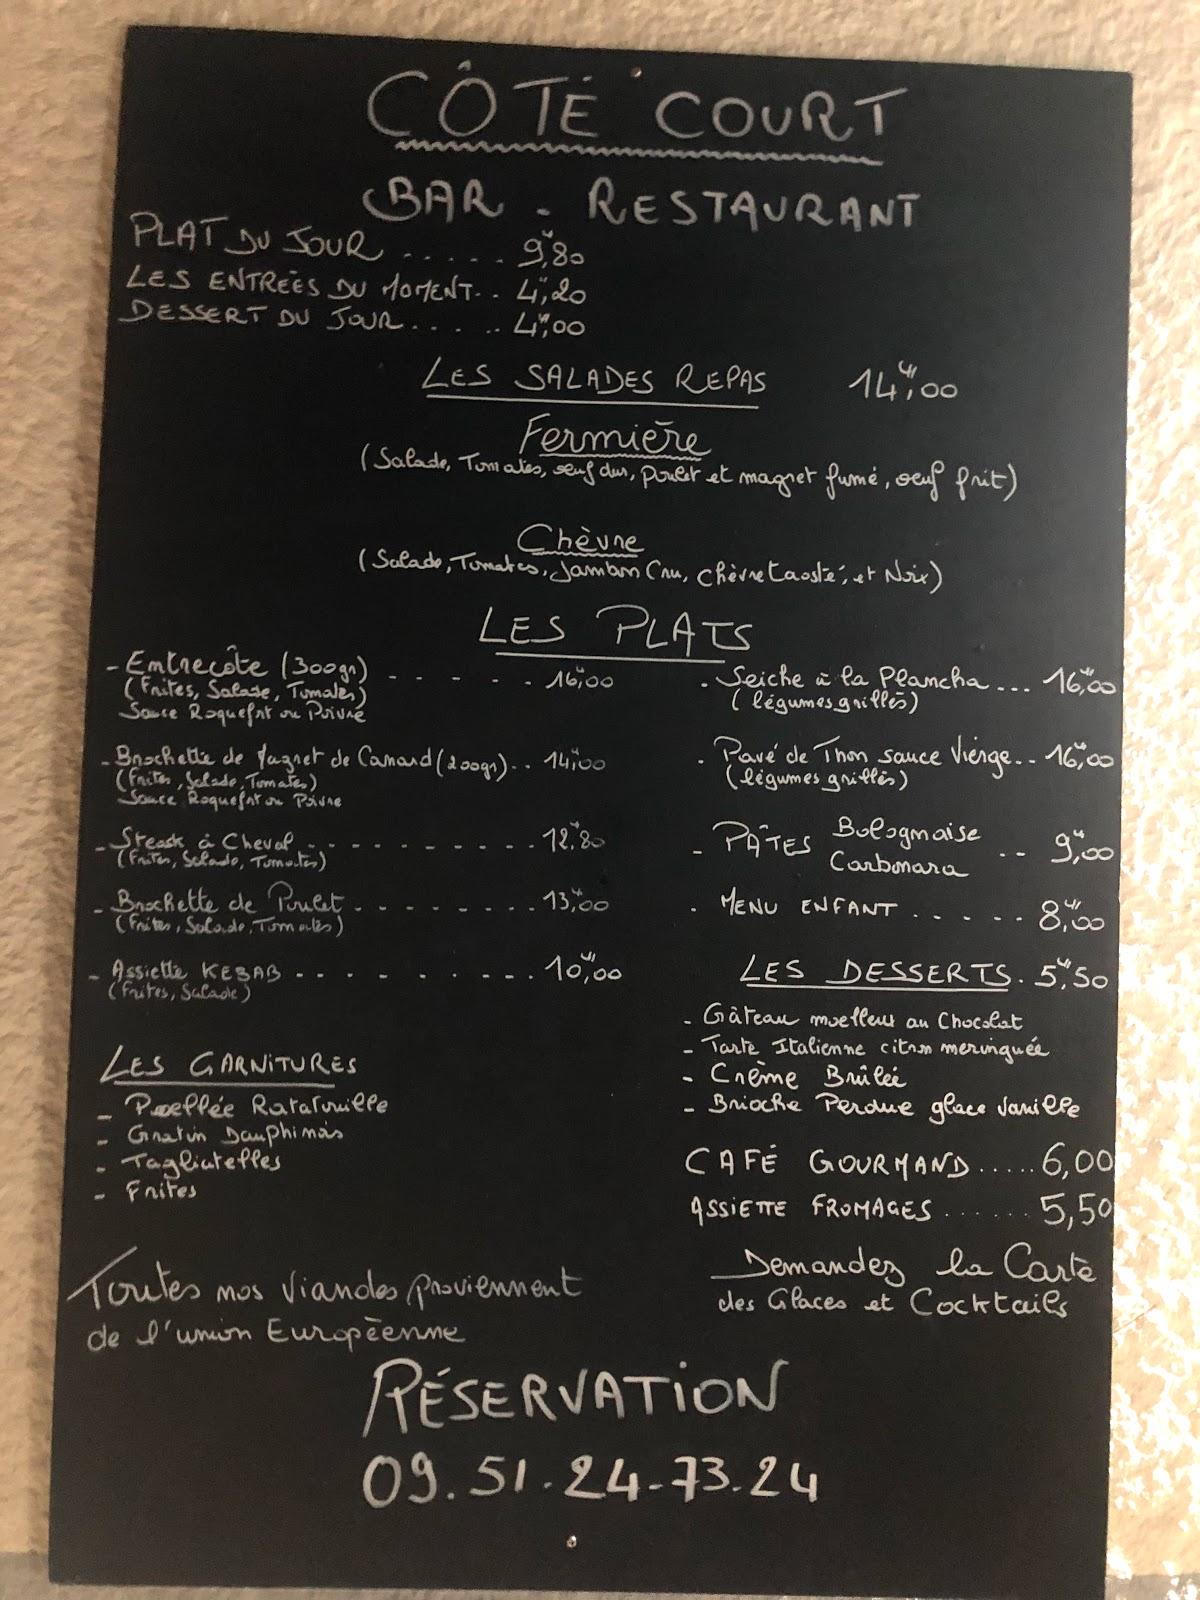 CÔTÉ COURT
BAR - RESTAURANT
PLAT DU JOUR ..... 9,80
LES ENTRÉES DU MOMENT... 4,20
DESSERT DU JOUR...... 4,00
LES SALADES REPAS 14,00
Fermière
(Salade, Tomates, œuf dur, poulet et magret fumé, oeuf frit)
Chèvre
(Salade, Tomates, Jambon Cru, Chèvre toasté, et Noix)
LES PLATS
- Entrecôte (300gr) ...... 16,00
(Frites, Salade, Tomates)
Sauce Roquefort ou Poivre
- Brochette de Magret de Canard (200gr)... 14,00
(Frites, Salade, Tomates)
Sauce Roquefort ou Poivre
- Steack à Cheval ........... 12,80
(Frites, Salade, Tomates)
- Brochette de Poulet ......... 13,00
(Frites, Salade, Tomates)
- Assiette KEBAB ......... 10,00
(Frites, Salade)
LES GARNITURES
- Poellée Ratatouille
- Gratin Dauphinois
- Tagliatelles
- Frites
Toutes nos viandes proviennent
de l'union Européenne
- Seiche à la Plancha ... 16,00
(légumes grillés)
- Pavé de Thon sauce Vierge.. 16,00
(légumes grillés)
- PÂTES Bolognaise
Carbonara .. 9,00
- MENU ENFANT ...... 8,00
LES DESSERTS. 5,50
- Gâteau moelleux au Chocolat
- Tarte Italienne citron meringuée
- Crème Brûlée
- Brioche Perdue glace vanille
CAFÉ GOURMAND..... 6,00
ASSIETTE FROMAGES ...... 5,50
Demandez la Carte
des Glaces et Cocktails
RÉSERVATION
09.51.24.73.24